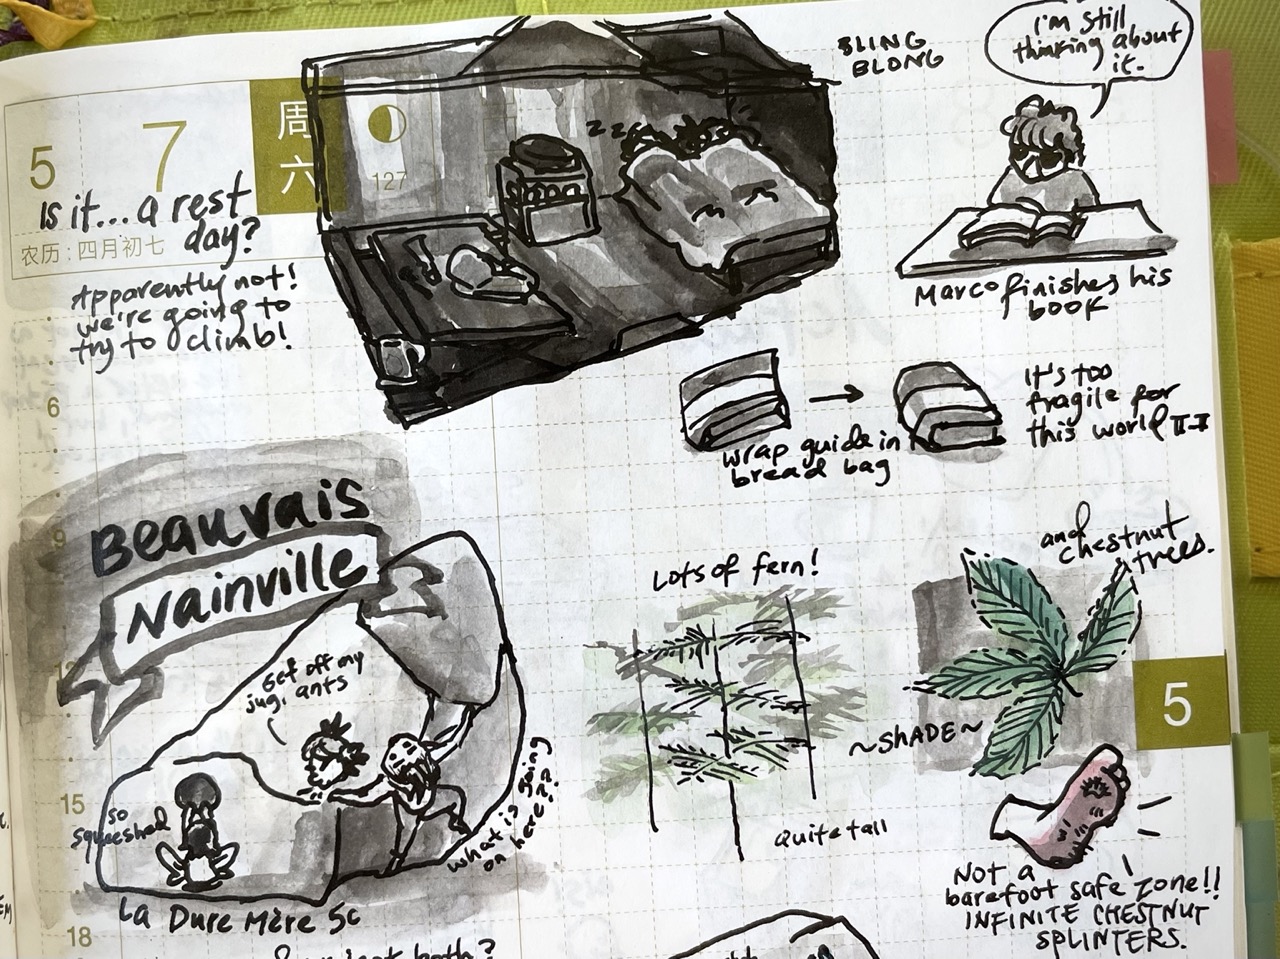 5
7
周
六
127
农历:四月初七
Is it... a rest
day?
Apparently not!
we're going to
try to climb!
z z z
BLING
BLONG
I'm still
thinking about
it.
Marco finishes his
book
wrap guide in
bread bag
It's too
fragile for
this world
6
9
Beauvais
Nainville
Get off my
jug, ants
so
squeeshed
what is going
on here??
La Dure Mère 5c
Lots of fern!
quite tall
and
chestnut
trees.
~SHADE~
5
Not a
barefoot safe zone!!
INFINITE CHESTNUT
SPLINTERS.
12
15
18